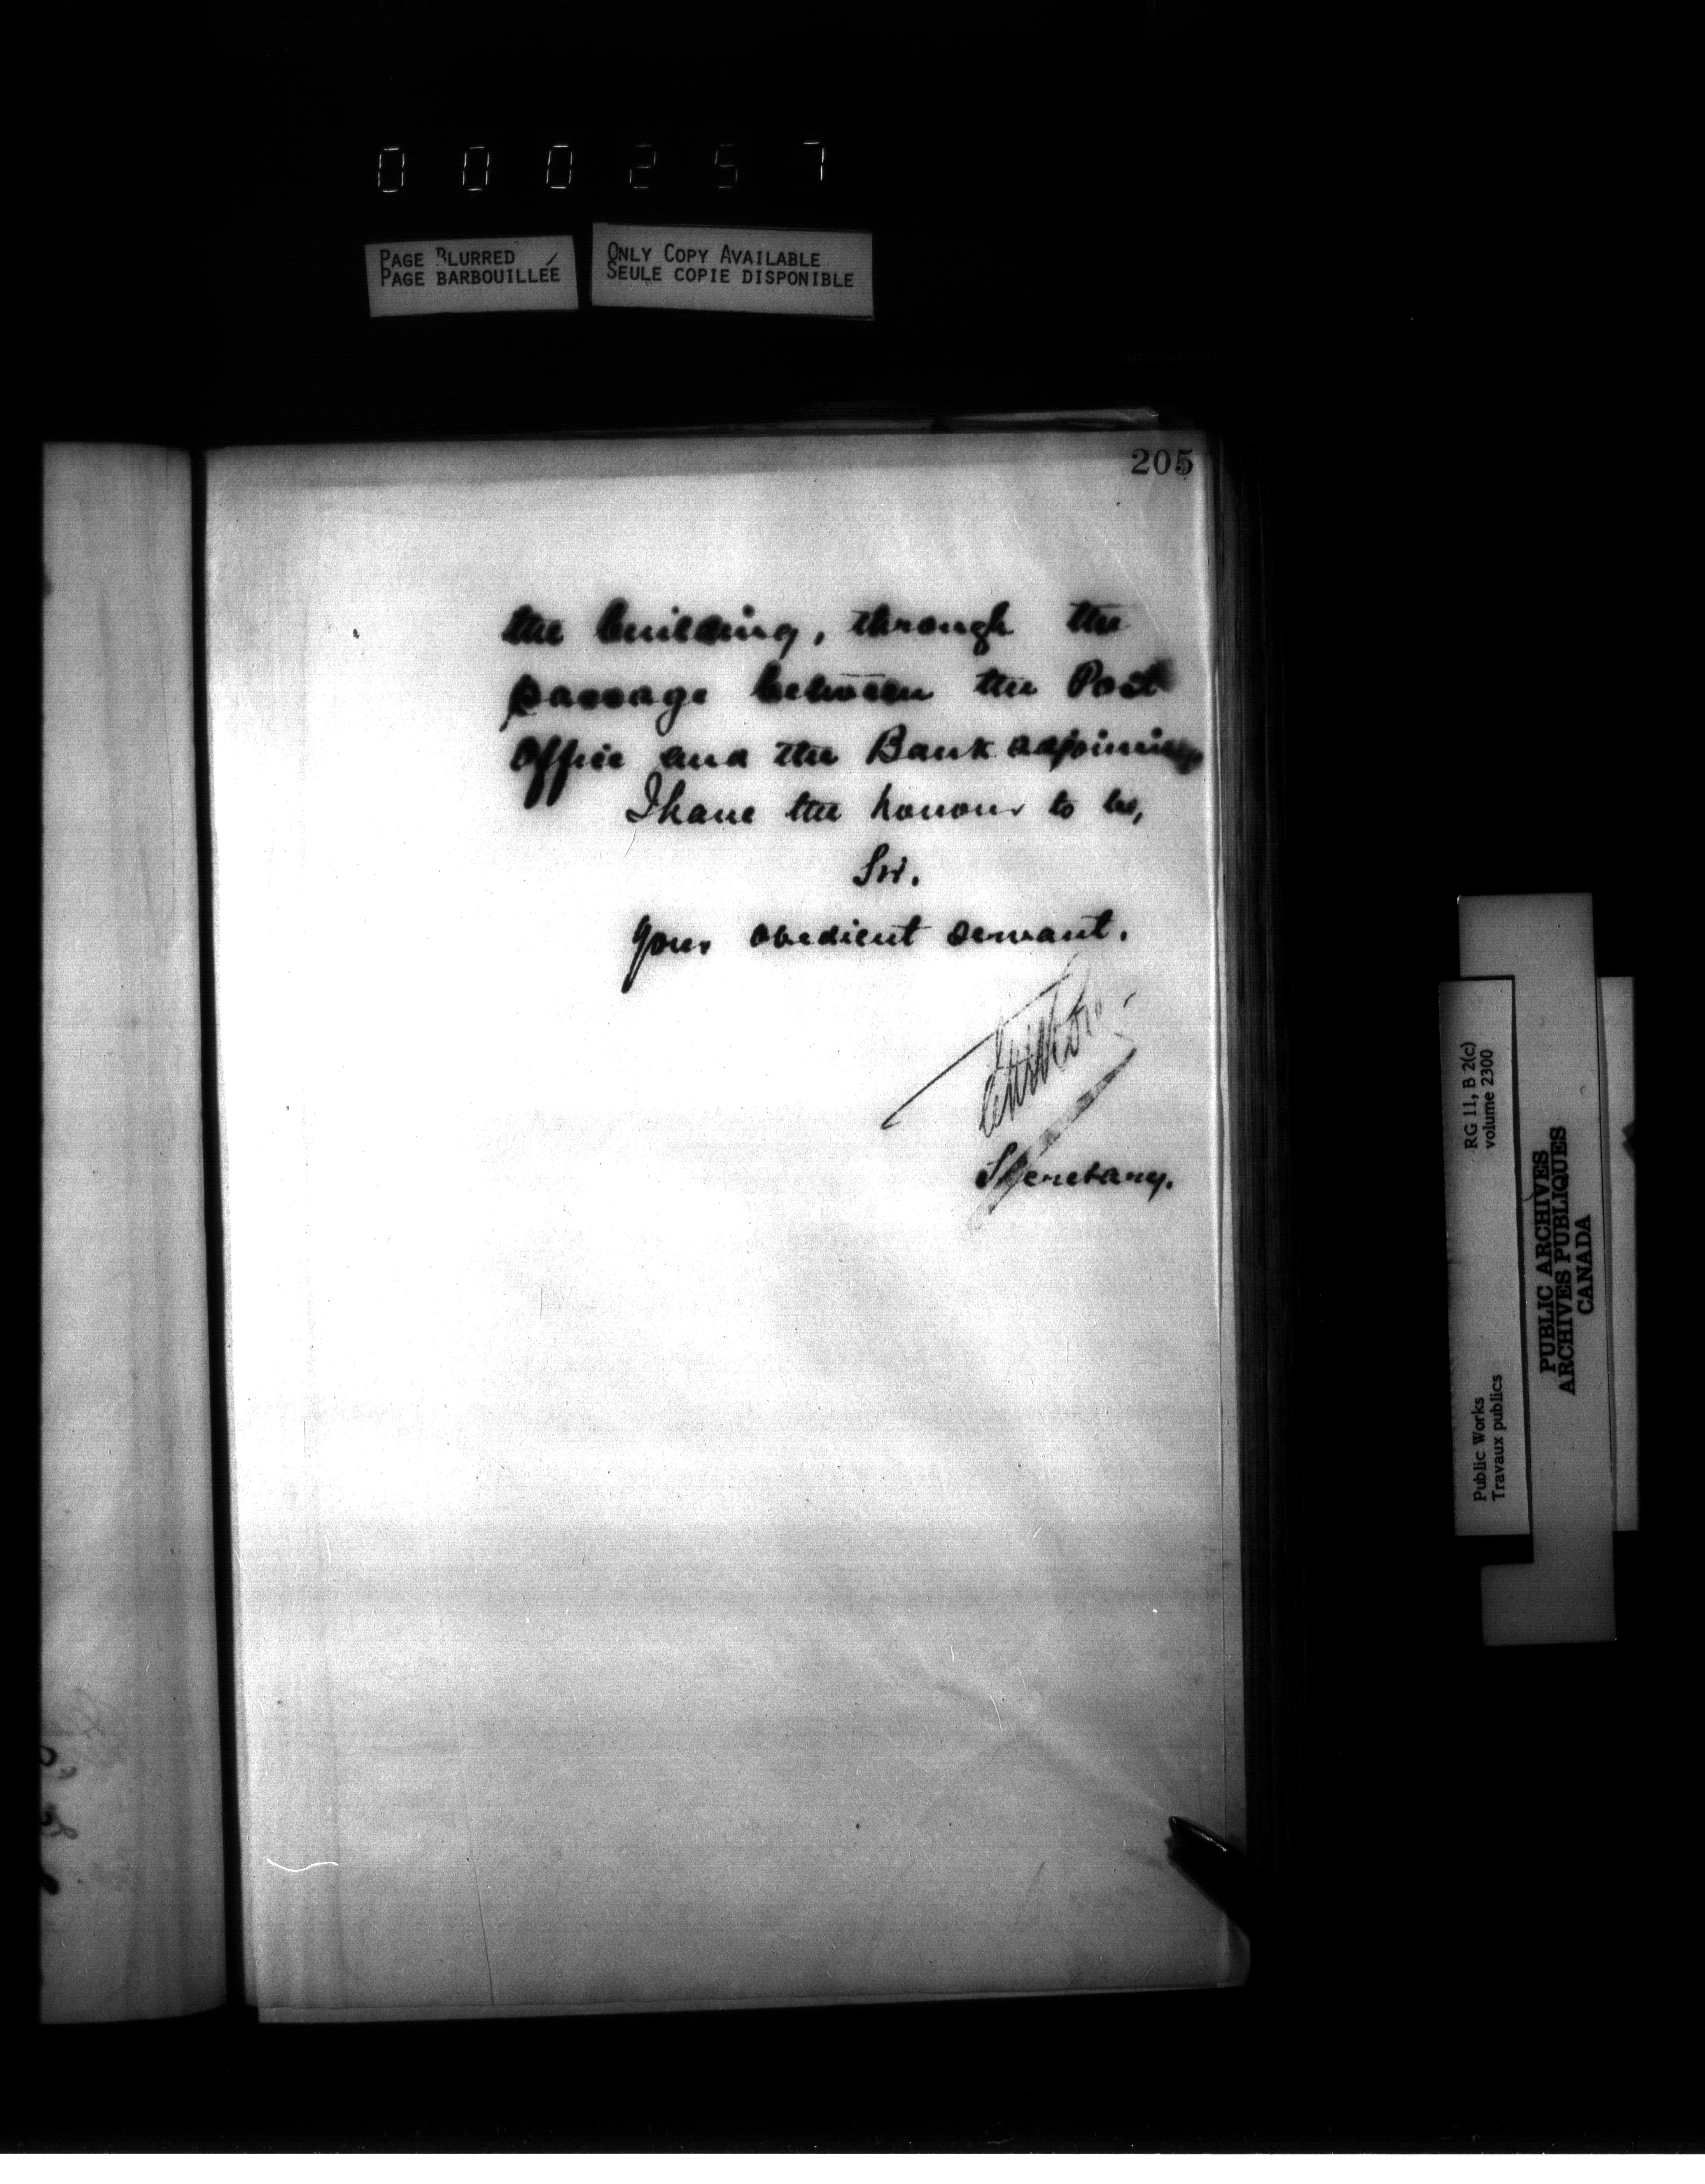 000257
PAGE BLURRED
PAGE BARBOUILLÉE
ONLY COPY AVAILABLE
SEULE COPIE DISPONIBLE
205
the building, through the
passage between the Post
Office and the Bank adjoining
I have the honour to be,
Sir.
Your obedient servant.
Secretary.
RG 11, B 2(c)
volume 2300
Public Works
Travaux publics
PUBLIC ARCHIVES
ARCHIVES PUBLIQUES
CANADA